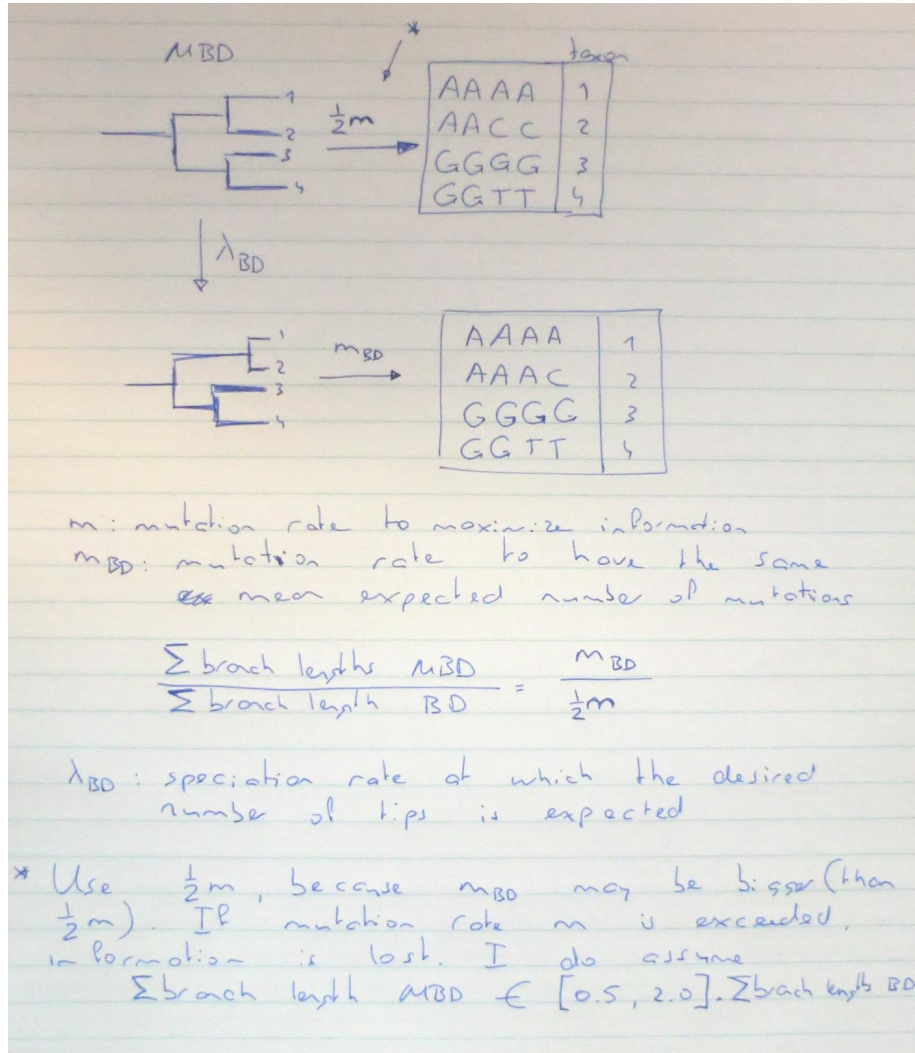 *
MBD
taxon
1
2
3
4
½m
AAAA 1
AACC 2
GGGG 3
GGTT 4
λBD
1
2
3
4
mBD
AAAA 1
AAAC 2
GGGG 3
GGTT 4
m: mutation rate to maximize information
mBD: mutation rate to have the same
mean expected number of mutations
Σ branch lengths MBD / Σ branch length BD = mBD / ½m
λBD: speciation rate at which the desired
number of tips is expected
* Use ½m, because mBD may be bigger (than
½m). If mutation rate m is exceeded,
information is lost. I do assume
Σ brach length MBD ∈ [0.5, 2.0]. Σ brach length BD